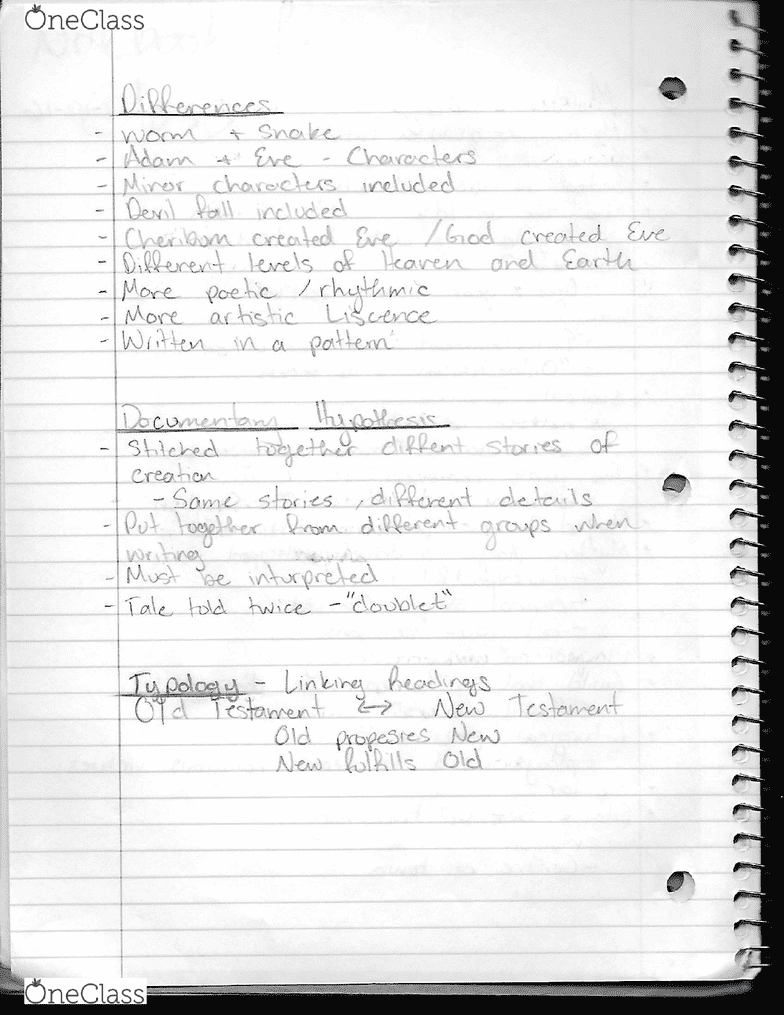 OneClass
Differences
- worm + Snake
- Adam + Eve - Characters
- Minor characters included
- Devil fall included
- Cheribum created Eve / God created Eve
- Different levels of Heaven and Earth
- More poetic / rhythmic
- More artistic Liscence
- Written in a pattern
Documentary Hypothesis
- Stitched together diffent stories of
creation
- Same stories, different details
- Put together from different groups when
writing
- Must be inturpreted
- Tale told twice - "doublet"
Typology - Linking Readings
Old Testament <-> New Testament
Old propesies New
New fulfills Old
OneClass